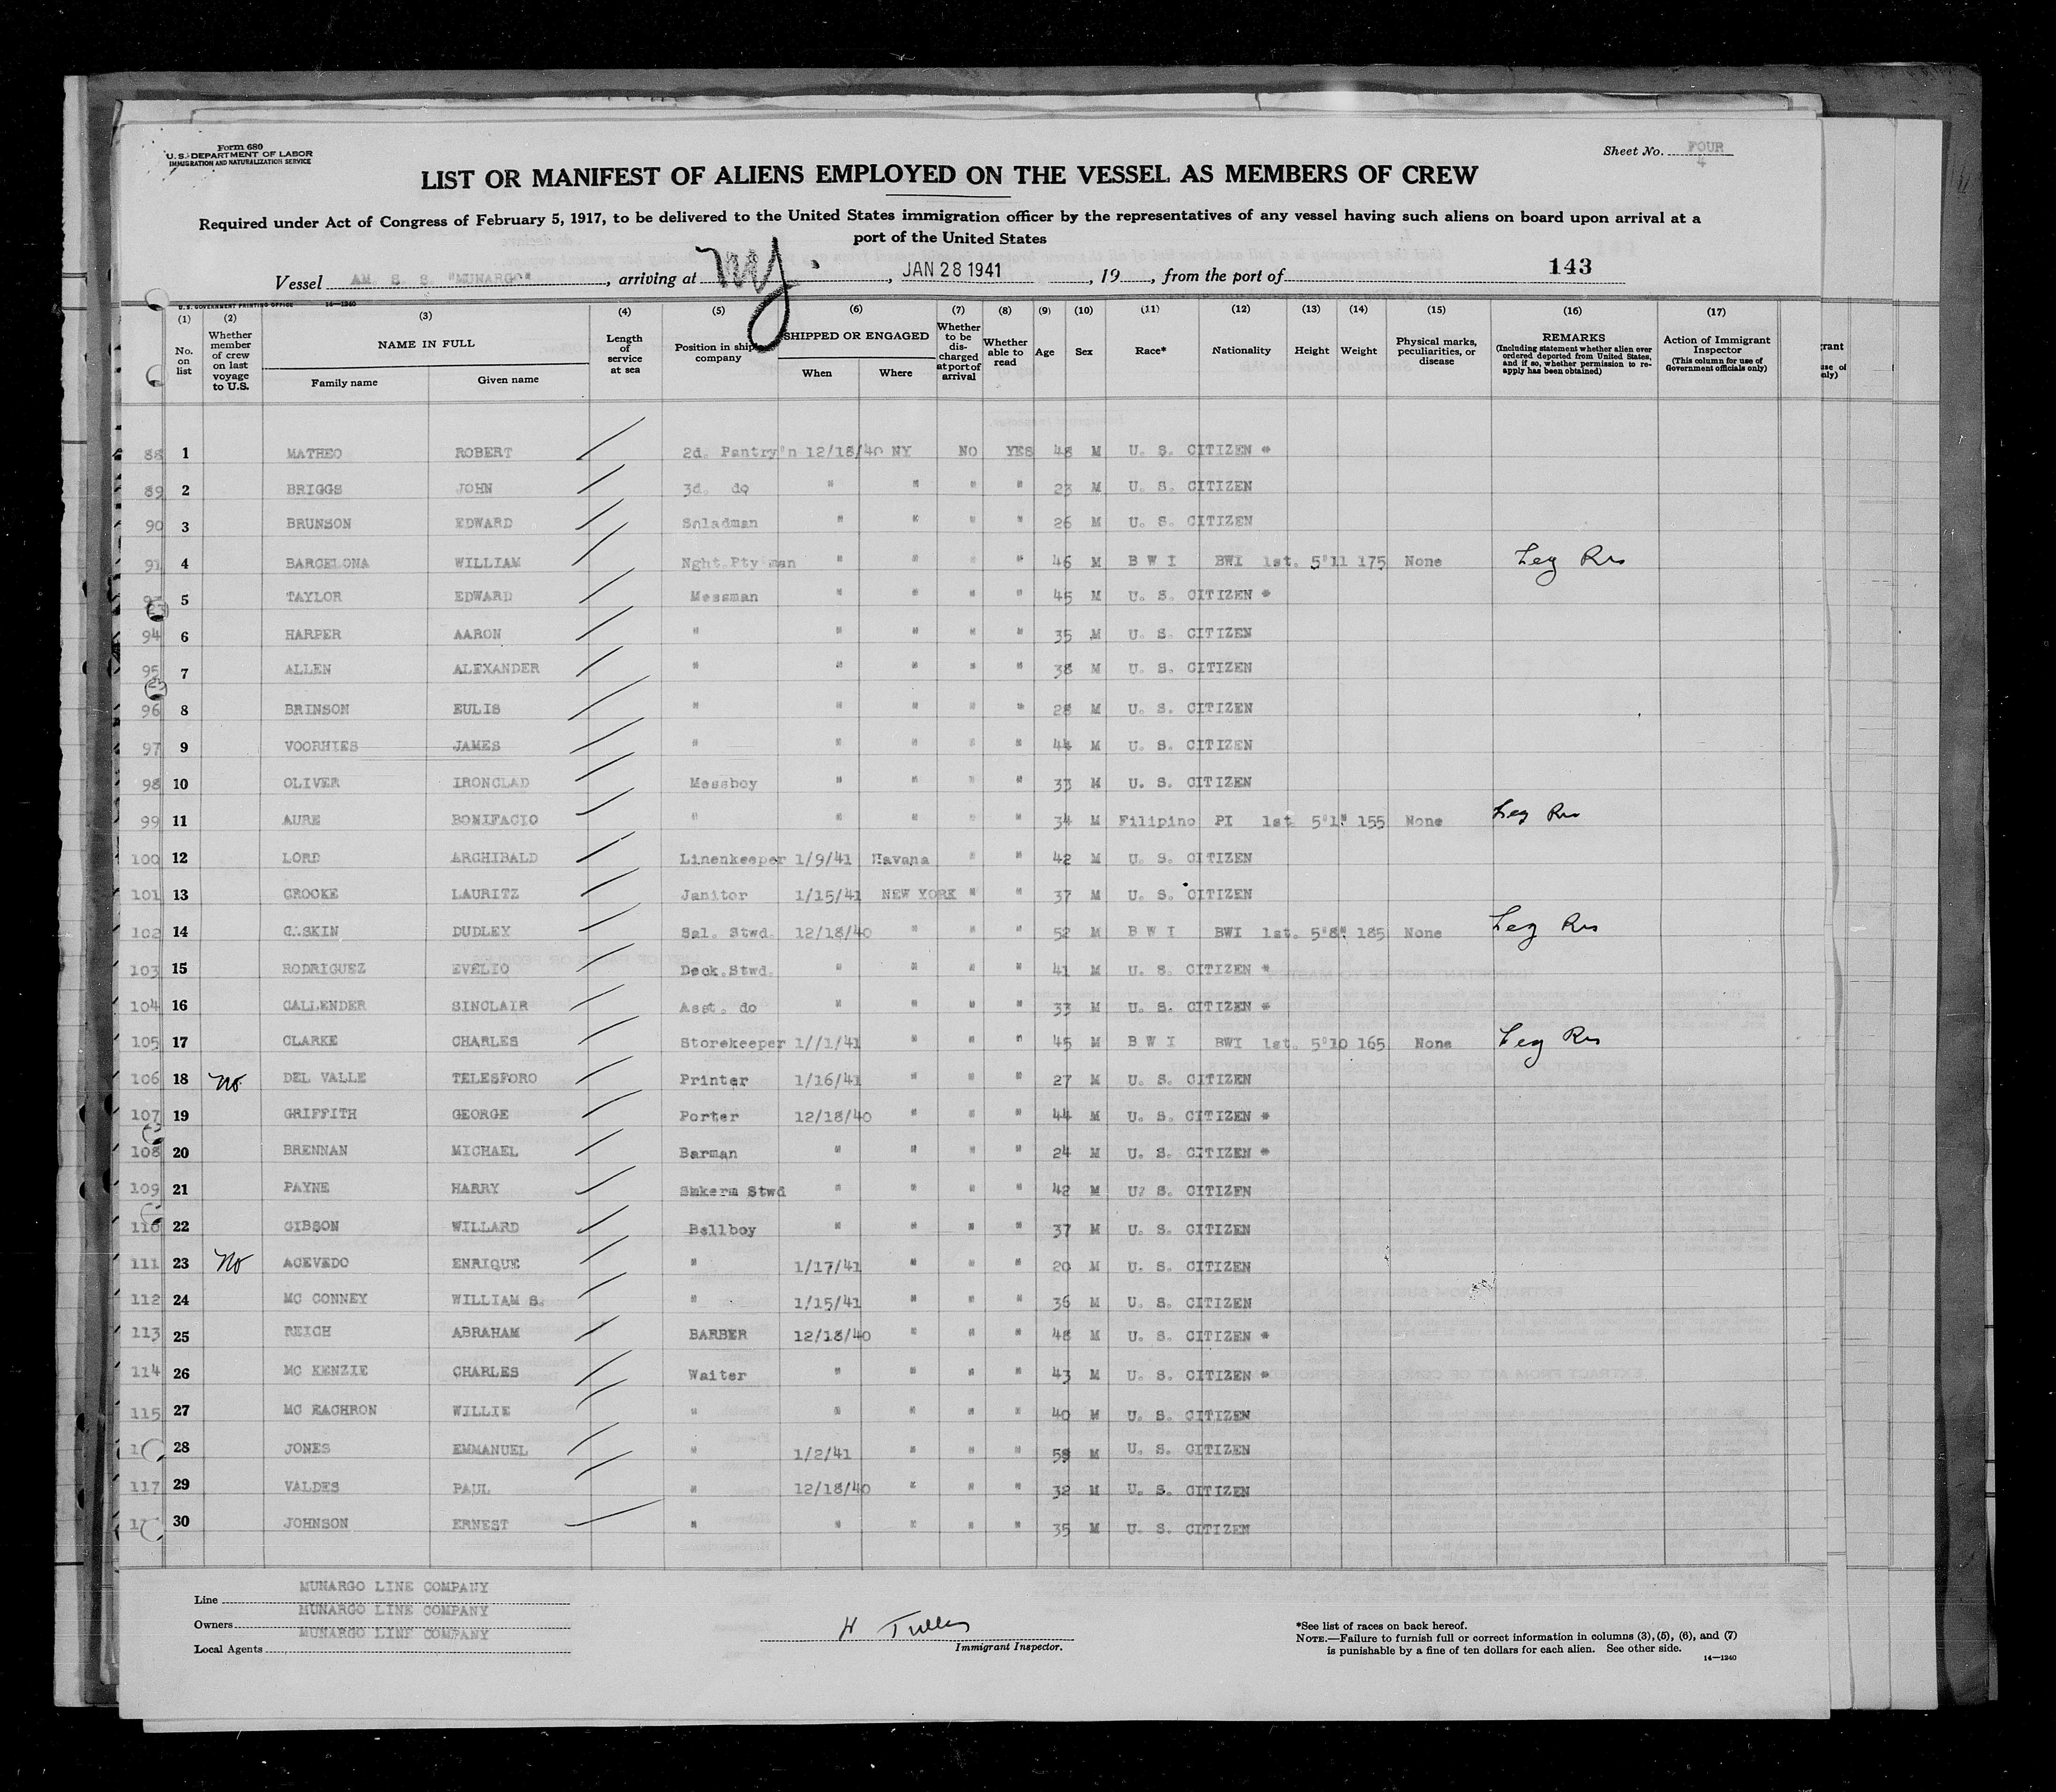 Form 680
U. S. DEPARTMENT OF LABOR
IMMIGRATION AND NATURALIZATION SERVICE
Sheet No. FOUR
4
LIST OR MANIFEST OF ALIENS EMPLOYED ON THE VESSEL AS MEMBERS OF CREW
Required under Act of Congress of February 5, 1917, to be delivered to the United States immigration officer by the representatives of any vessel having such aliens on board upon arrival at a
port of the United States
Vessel AM S S "MUNARGO", arriving at NY., JAN 28 1941, 19, from the port of 143
U. S. GOVERNMENT PRINTING OFFICE 14—1240
(1) (2) (3) (4) (5) (6) (7) (8) (9) (10) (11) (12) (13) (14) (15) (16) (17)
No. on list
Whether member of crew on last voyage to U.S.
NAME IN FULL
Family name
Given name
Length of service at sea
Position in ship's company
SHIPPED OR ENGAGED
When
Where
Whether to be discharged at port of arrival
Whether able to read
Age
Sex
Race*
Nationality
Height
Weight
Physical marks, peculiarities, or disease
REMARKS
(Including statement whether alien ever ordered deported from United States, and if so, whether permission to reapply has been obtained)
Action of Immigrant Inspector
(This column for use of Government officials only)
88 1 MATHEO ROBERT 2d. Pantry'n 12/18/40 NY NO YES 48 M U. S. CITIZEN *
89 2 BRIGGS JOHN 3d. do " " " " 23 M U. S. CITIZEN
90 3 BRUNSON EDWARD Saladman " " " 26 M U. S. CITIZEN
91 4 BARCELONA WILLIAM Nght Pty man " " " " 46 M B W I BWI 1st. 5'11 175 None Leg Res
5 TAYLOR EDWARD Messman " " " " 45 M U. S. CITIZEN *
94 6 HARPER AARON " " " " " 35 M U. S. CITIZEN
95 7 ALLEN ALEXANDER " " " " " 38 M U. S. CITIZEN
96 8 BRINSON EULIS " " " " " 28 M U. S. CITIZEN
97 9 VOORHIES JAMES " " " " " 44 M U. S. CITIZEN
98 10 OLIVER IRONCLAD Messboy " " " " 33 M U. S. CITIZEN
99 11 AURE BONIFACIO " " " " " 34 M Filipino PI 1st 5'1" 155 None Leg Res
100 12 LORD ARCHIBALD Linenkeeper 1/9/41 Havana " " 42 M U. S. CITIZEN
101 13 CROOKE LAURITZ Janitor 1/15/41 NEW YORK " " 37 M U. S. CITIZEN
102 14 GASKIN DUDLEY Sal. Stwd. 12/18/40 " " " 52 M B W I BWI 1st. 5'8" 185 None Leg Res
103 15 RODRIGUEZ EVELIO Deck.Stwd. " " " " 41 M U. S. CITIZEN *
104 16 CALLENDER SINCLAIR Asst. do " " " " 33 M U. S. CITIZEN *
105 17 CLARKE CHARLES Storekeeper 1//1/41 " " " 45 M B W I BWI 1st. 5'10 165 None Leg Res
106 18 No. DEL VALLE TELESFORO Printer 1/16/41 " " " 27 M U. S. CITIZEN
107 19 GRIFFITH GEORGE Porter 12/18/40 " " " 44 M U. S. CITIZEN *
108 20 BRENNAN MICHAEL Barman " " " " 24 M U. S. CITIZEN *
109 21 PAYNE HARRY Smkerm Stwd " " " " 42 M U? S. CITIZEN
110 22 GIBSON WILLARD Bellboy " " " " 37 M U. S. CITIZEN
111 23 No ACEVEDO ENRIQUE " 1/17/41 " " " 20 M U. S. CITIZEN
112 24 MC CONNEY WILLIAM S. " 1/15/41 " " " 36 M U. S. CITIZEN
113 25 REICH ABRAHAM BARBER 12/18/40 " " " 48 M U. S. CITIZEN *
114 26 MC KENZIE CHARLES Waiter " " " " 43 M U. S. CITIZEN *
115 27 MC EACHRON WILLIE " " " " " 40 M U. S. CITIZEN
28 JONES EMMANUEL " 1/2/41 " " " M U. S. CITIZEN
117 29 VALDES PAUL " 12/18/40 " " " 32 M U. S. CITIZEN
30 JOHNSON ERNEST " " " " " 35 M U. S. CITIZEN
Line MUNARGO LINE COMPANY
Owners MUNARGO LINE COMPANY
Local Agents MUNARGO LINE COMPANY
Immigrant Inspector.
*See list of races on back hereof.
NOTE.—Failure to furnish full or correct information in columns (3), (5), (6), and (7)
is punishable by a fine of ten dollars for each alien. See other side.
14—1240